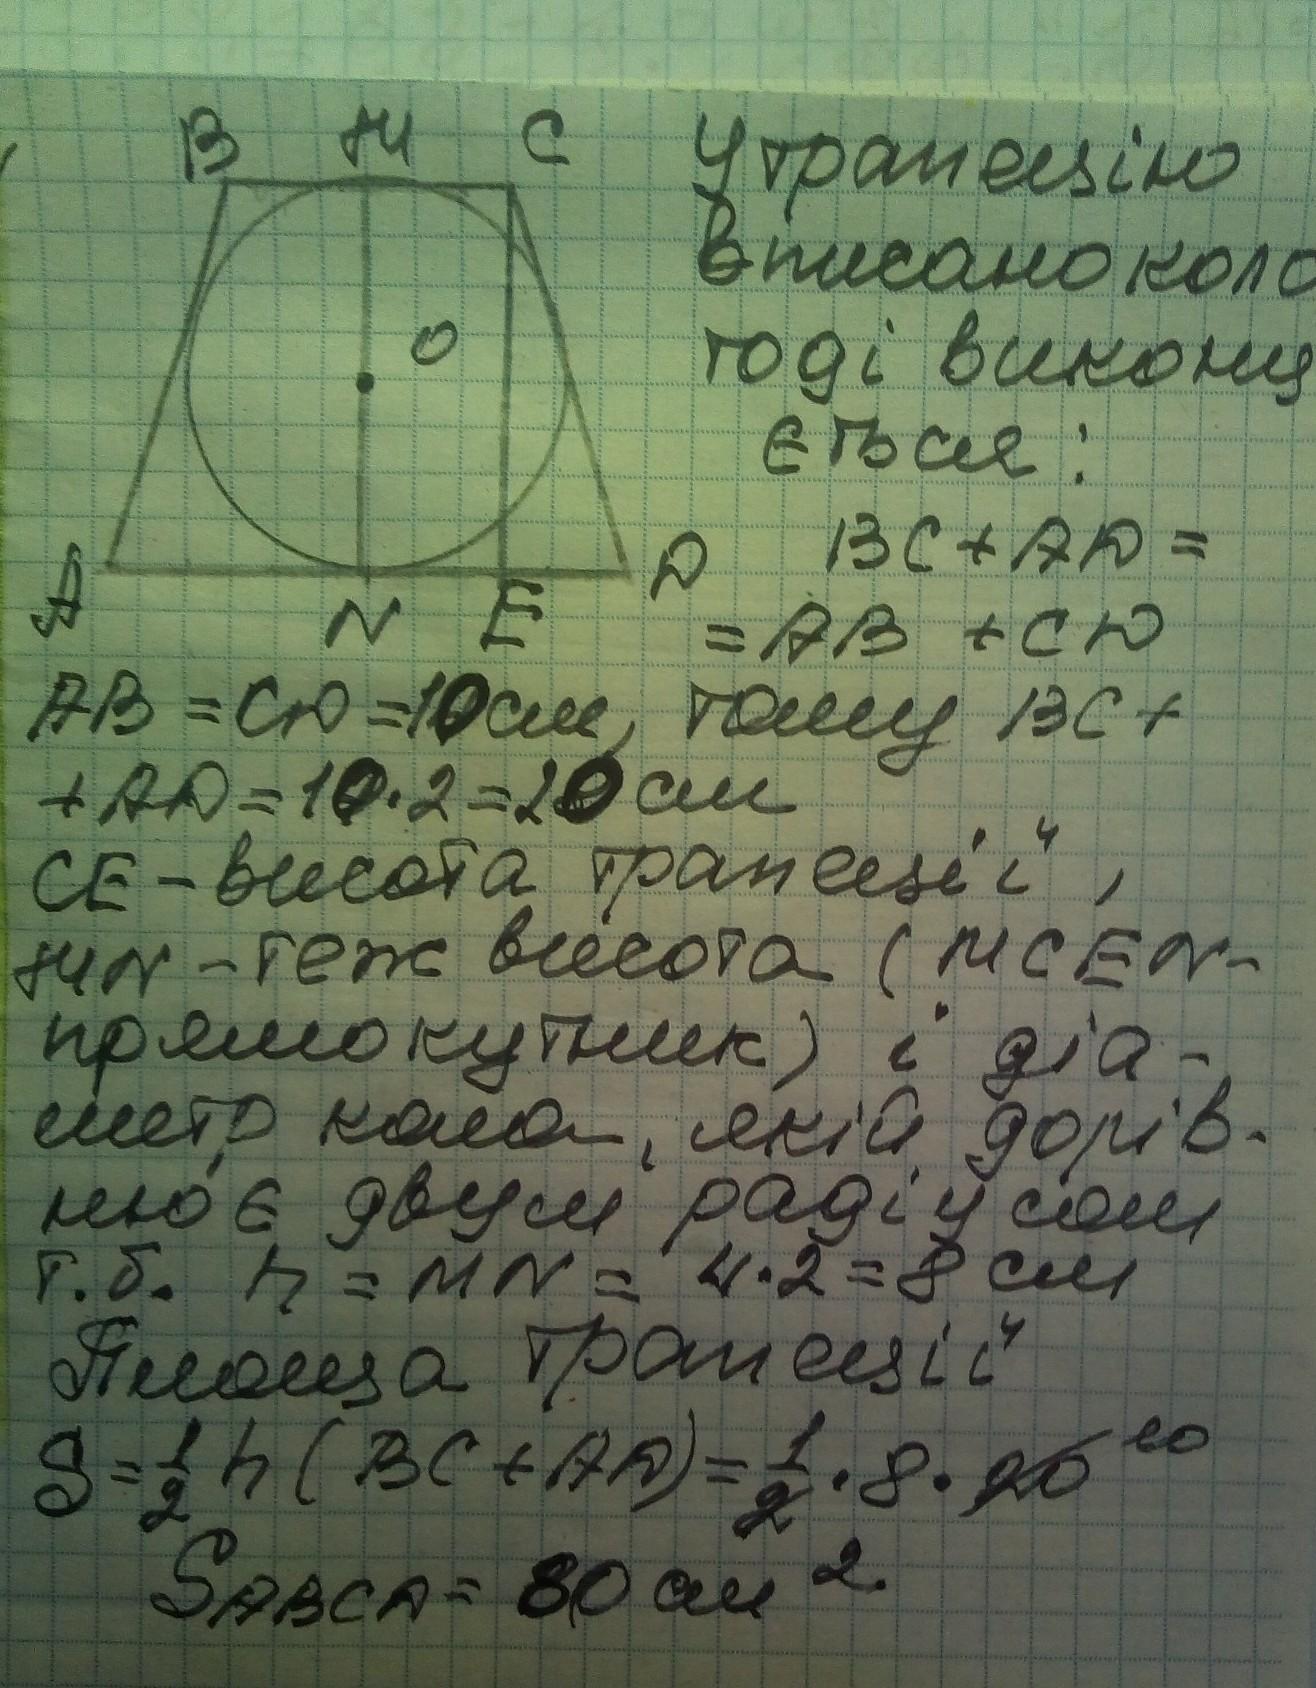 В М С
У трапецію
вписано коло
тоді викону
ється :
О
ВС + АD =
А N E D
= АВ + СD
АВ = СD = 10 см, тому ВС +
+ АD = 10 · 2 = 20 см
СЕ – висота трапеції,
МN – теж висота (МСЕN –
прямокутник) і діа-
метр кола, якій дорів-
нює двум радіусам
т.б. h = MN = 4 · 2 = 8 см
Площа трапеції
S = 1/2 h (ВС + АD) = 1/2 · 8 · 20 10
SАВСD = 80 см².